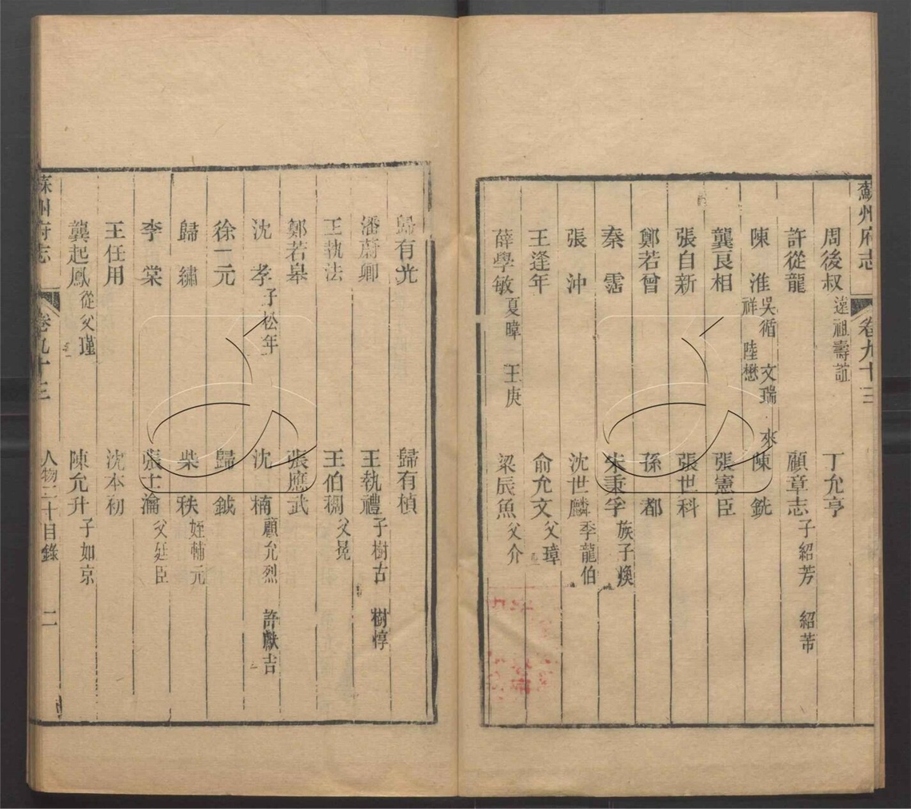 蘇州府志 卷九十三
周後叔 遠祖壽誼 丁允亨
許從龍 顧章志 子紹芳 紹芾
陳淮 吳循 文瑞 來祥 陸懋 陳銑
龔良相 張憲臣
張自新 張世科
鄭若曾 孫都
秦霑 朱秉孚 族子煥
張沖 沈世麟 季龍伯
王逢年 俞允文 父璋
薛學敏 夏暐 王庚 梁辰魚 父介
歸有光 歸有楨
潘蔚卿 王執禮 子樹古 樹惇
王執法 王伯稠 父冕
鄭若皋 張應武
沈孝 子松年 沈楠 顧允烈 許獻吉
徐一元 歸鉞
歸繡 柴秩 姪輔元
李棠 張士瀹 父廷臣
王任用 沈本初
龔起鳳 從父瑾 陳允升 子如京
蘇州府志 卷九十三 人物二十目錄 二